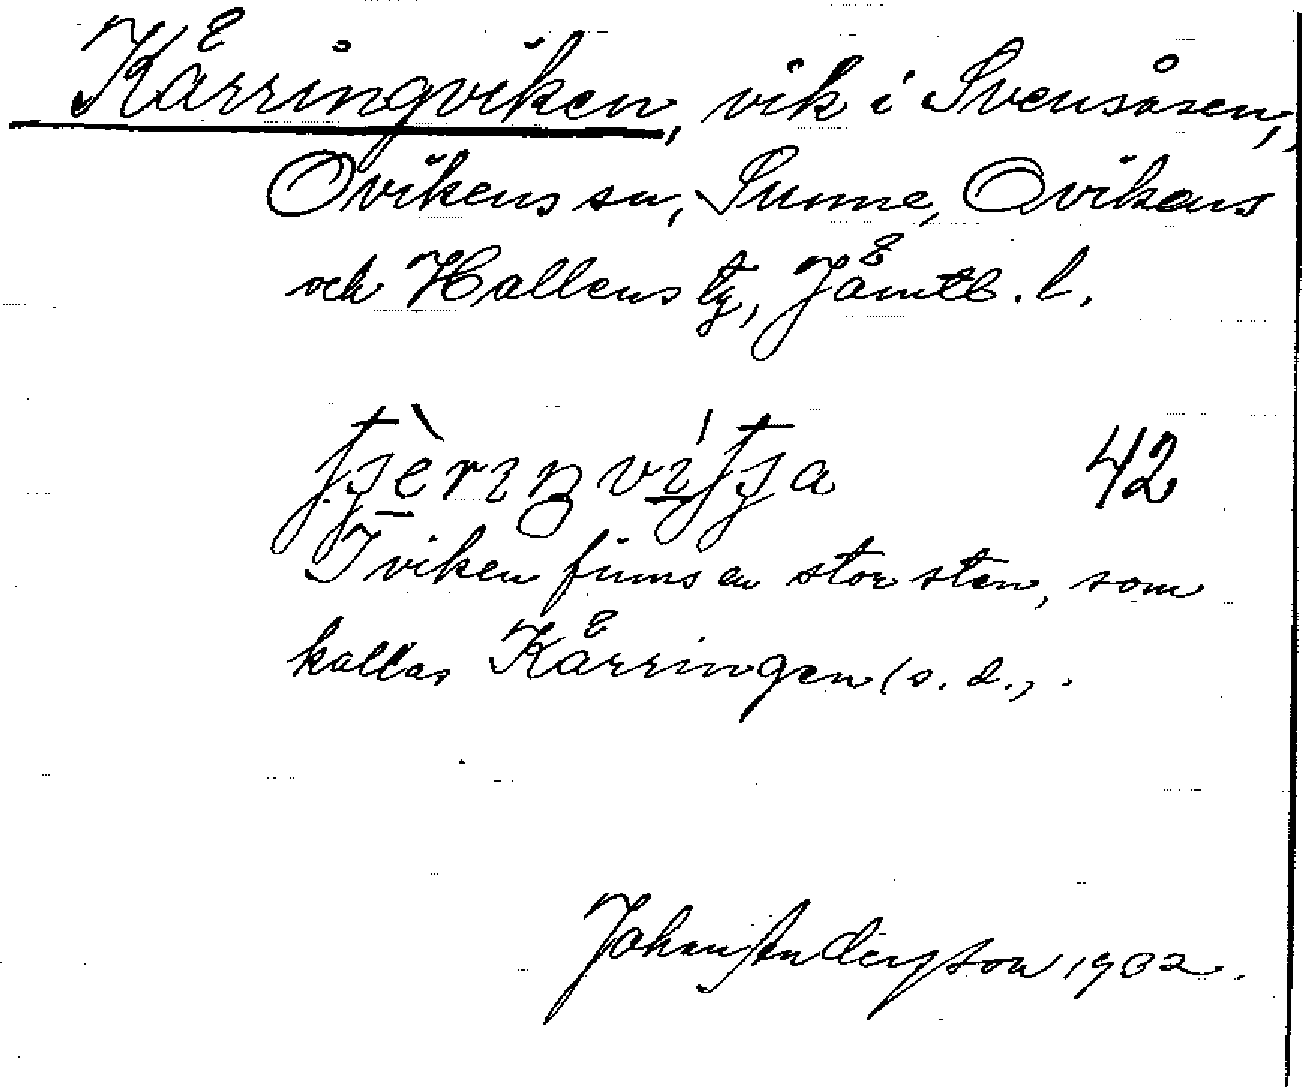 Kärringviken, vik i Svensåsen,
Ovikens sn, Sunne, Ovikens
och Hallens tg, Jämtl. l.
42
I viken finns en stor sten, som
kallas Kärringen (s. d.).
Johan Anderson 1932.